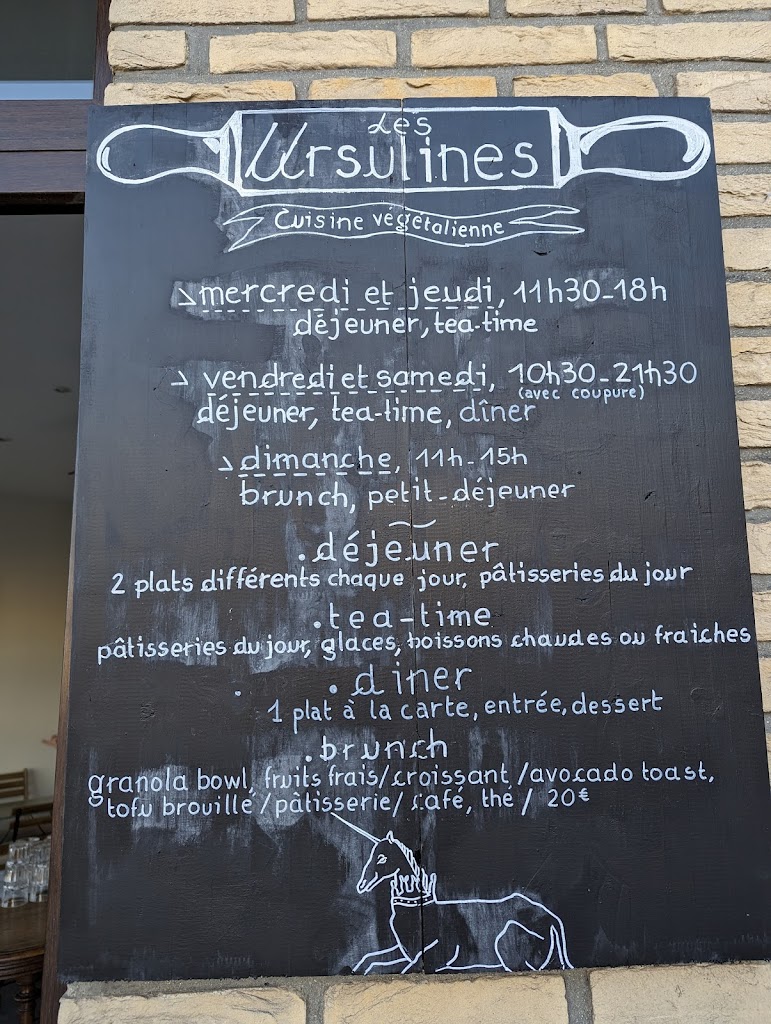 Les
Ursulines
Cuisine végétalienne
mercredi et jeudi, 11h30-18h
déjeuner, tea-time
vendredi et samedi, 10h30-21h30
(avec coupure)
déjeuner, tea-time, dîner
dimanche, 11h-15h
brunch, petit-déjeuner
. déjeuner
2 plats différents chaque jour, pâtisseries du jour
. tea-time
pâtisseries du jour, glaces, boissons chaudes ou fraiches
. diner
1 plat à la carte, entrée, dessert
. brunch
granola bowl, fruits frais/croissant/avocado toast,
tofu brouillé/pâtisserie/café, thé/ 20€